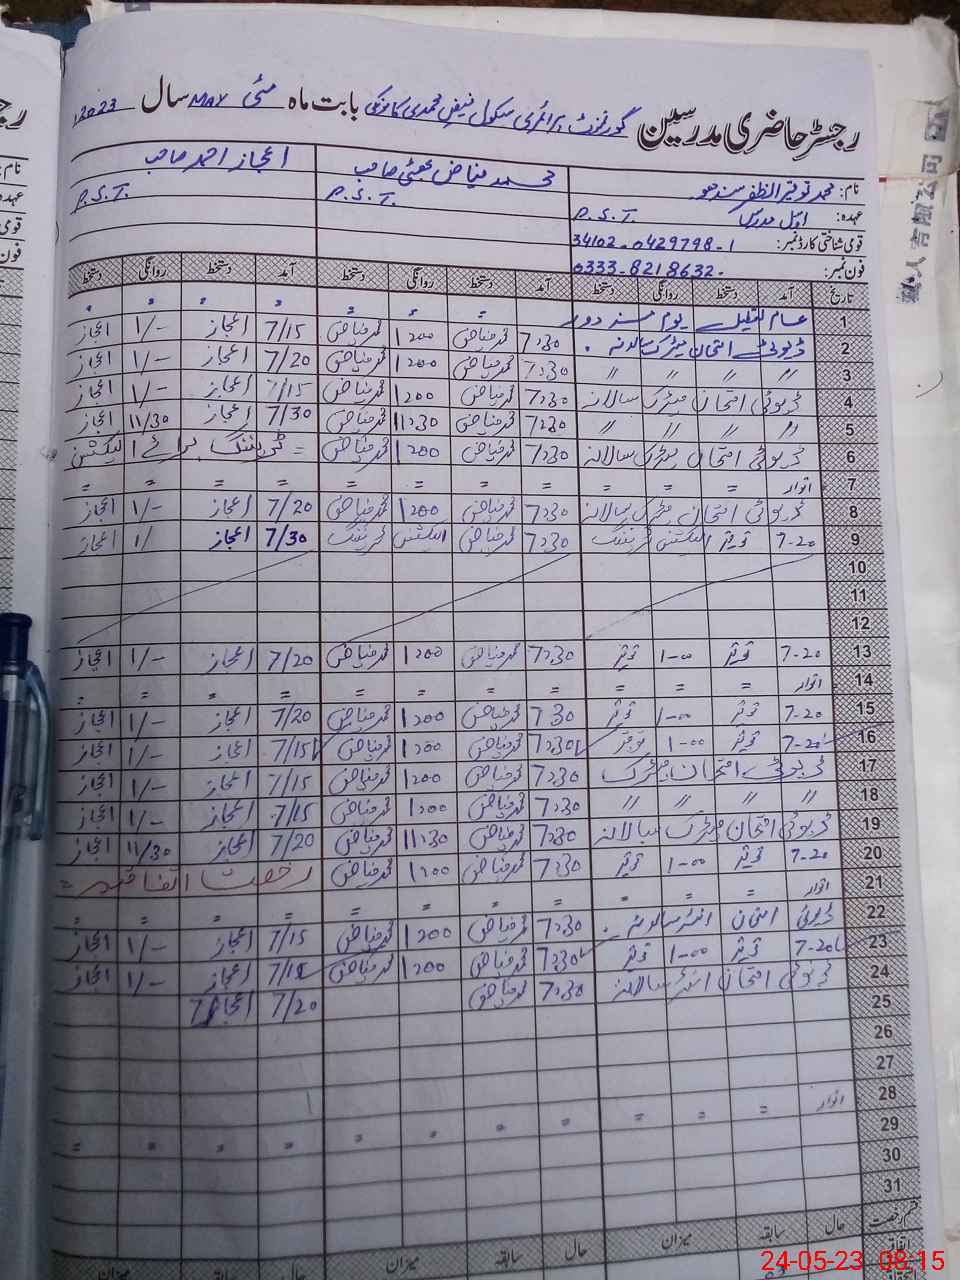 رجسٹر حاضری مدرسین گورنمنٹ پرائمری سکول فیض محمدی کاموکی بابت ماہ مئی MAY سال 2023ء
نام: محمد توقیر الظفر سندھو محمد فیاض بھٹی صاحب اعجاز احمد صاحب
عہدہ: اول مدرس P.S.T. P.S.T. P.S.T.
قومی شناختی کارڈ نمبر: 34102-0429798-1
فون نمبر: 0333-8218632
تاریخ آمد دستخط روانگی دستخط آمد دستخط روانگی دستخط آمد دستخط روانگی دستخط
1 عام تعطیل یوم مزدور
2 ڈیوٹی امتحان میٹرک سالانہ 7:30 محمد فیاض 1:00 محمد فیاض 7/15 اعجاز 1/- اعجاز
3 〃 〃 〃 〃 7:30 محمد فیاض 1:00 محمد فیاض 7/20 اعجاز 1/- اعجاز
4 ڈیوٹی امتحان میٹرک سالانہ 7:30 محمد فیاض 1:00 محمد فیاض 7/15 اعجاز 1/- اعجاز
5 〃 〃 〃 〃 7:30 محمد فیاض 11:30 محمد فیاض 7/30 اعجاز 11/30 اعجاز
6 ڈیوٹی امتحان میٹرک سالانہ 7:30 محمد فیاض 1:00 محمد فیاض = ٹریننگ برائے الیکشن
7 اتوار = = = = = = = = = = =
8 ڈیوٹی امتحان میٹرک سالانہ 7:30 محمد فیاض 1:00 محمد فیاض 7/20 اعجاز 1/- اعجاز
9 7-20 توقیر الیکشن ٹریننگ 7:30 محمد فیاض الیکشن ٹریننگ 7/30 اعجاز 1/ اعجاز
10
11
12
13 7-20 توقیر 1-00 توقیر 7:30 محمد فیاض 1:00 محمد فیاض 7/20 اعجاز 1/- اعجاز
14 اتوار = = = = = = = = = = =
15 7-20 توقیر 1-00 توقیر 7:30 محمد فیاض 1:00 محمد فیاض 7/20 اعجاز 1/- اعجاز
16 7-20 توقیر 1-00 توقیر 7:30 محمد فیاض 1:00 محمد فیاض 7/15 اعجاز 1/- اعجاز
17 ڈیوٹی امتحان میٹرک 7:30 محمد فیاض 1:00 محمد فیاض 7/15 اعجاز 1/- اعجاز
18 〃 〃 〃 〃 7:30 محمد فیاض 1:00 محمد فیاض 7/15 اعجاز 1/- اعجاز
19 ڈیوٹی امتحان میٹرک سالانہ 7:30 محمد فیاض 11:30 محمد فیاض 7/20 اعجاز 11/30 اعجاز
20 7-20 توقیر 1-00 توقیر 7:30 محمد فیاض 1:00 محمد فیاض رخصت اتفاقیہ =
21 اتوار = = = = = = = = = = =
22 ڈیوٹی امتحان انٹر سالانہ 7:30 محمد فیاض 1:00 محمد فیاض 7/15 اعجاز 1/- اعجاز
23 7-20 توقیر 1-00 توقیر 7:30 محمد فیاض 1:00 محمد فیاض 7/15 اعجاز 1/- اعجاز
24 ڈیوٹی امتحان انٹر سالانہ 7:30 محمد فیاض 7/20 اعجاز
25
26
27
28 اتوار = = = = = = = = = = =
29
30
31
قسم رخصت حال سابقہ میزان حال سابقہ میزان حال سابقہ میزان
اتفاقیہ
24-05-23 08:15